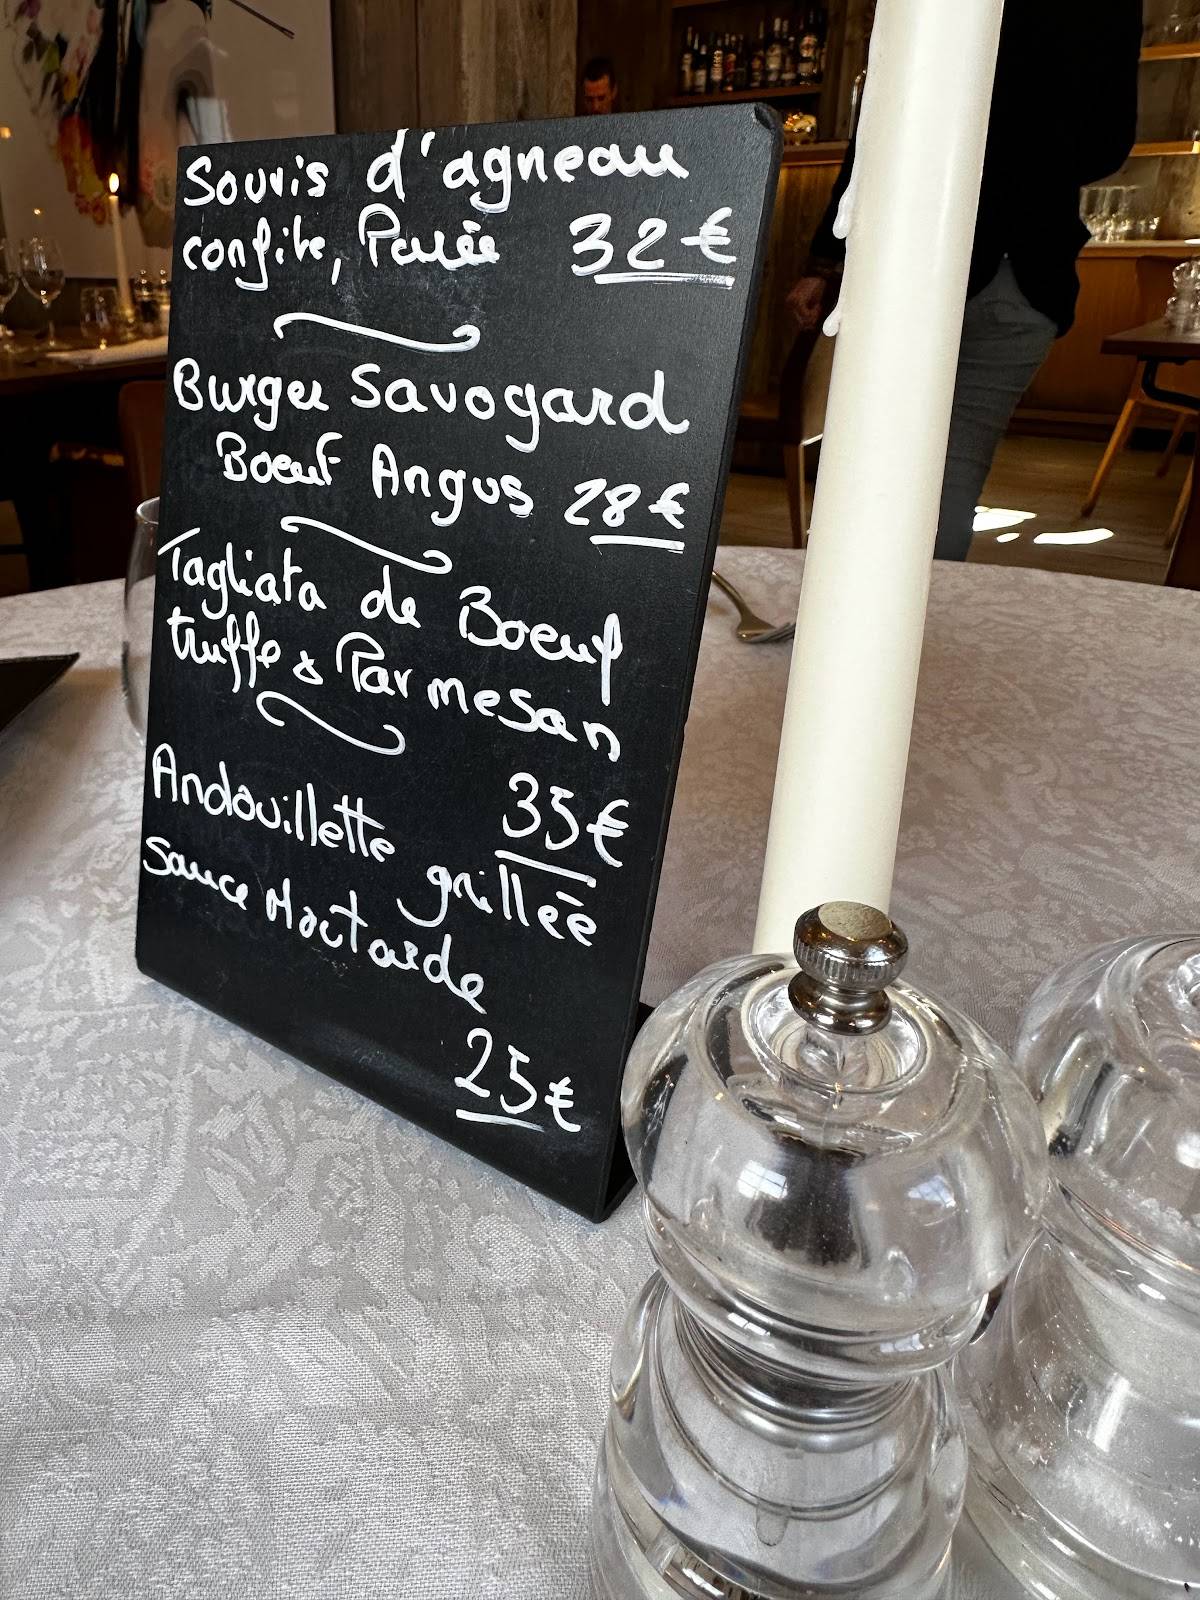 Souris d'agneau
confite, Purée 32€
Burger Savogard
Boeuf Angus 28€
Tagliata de Boeuf
truffe & Parmesan
35€
Andouillette grillée
sauce Moutarde
25€